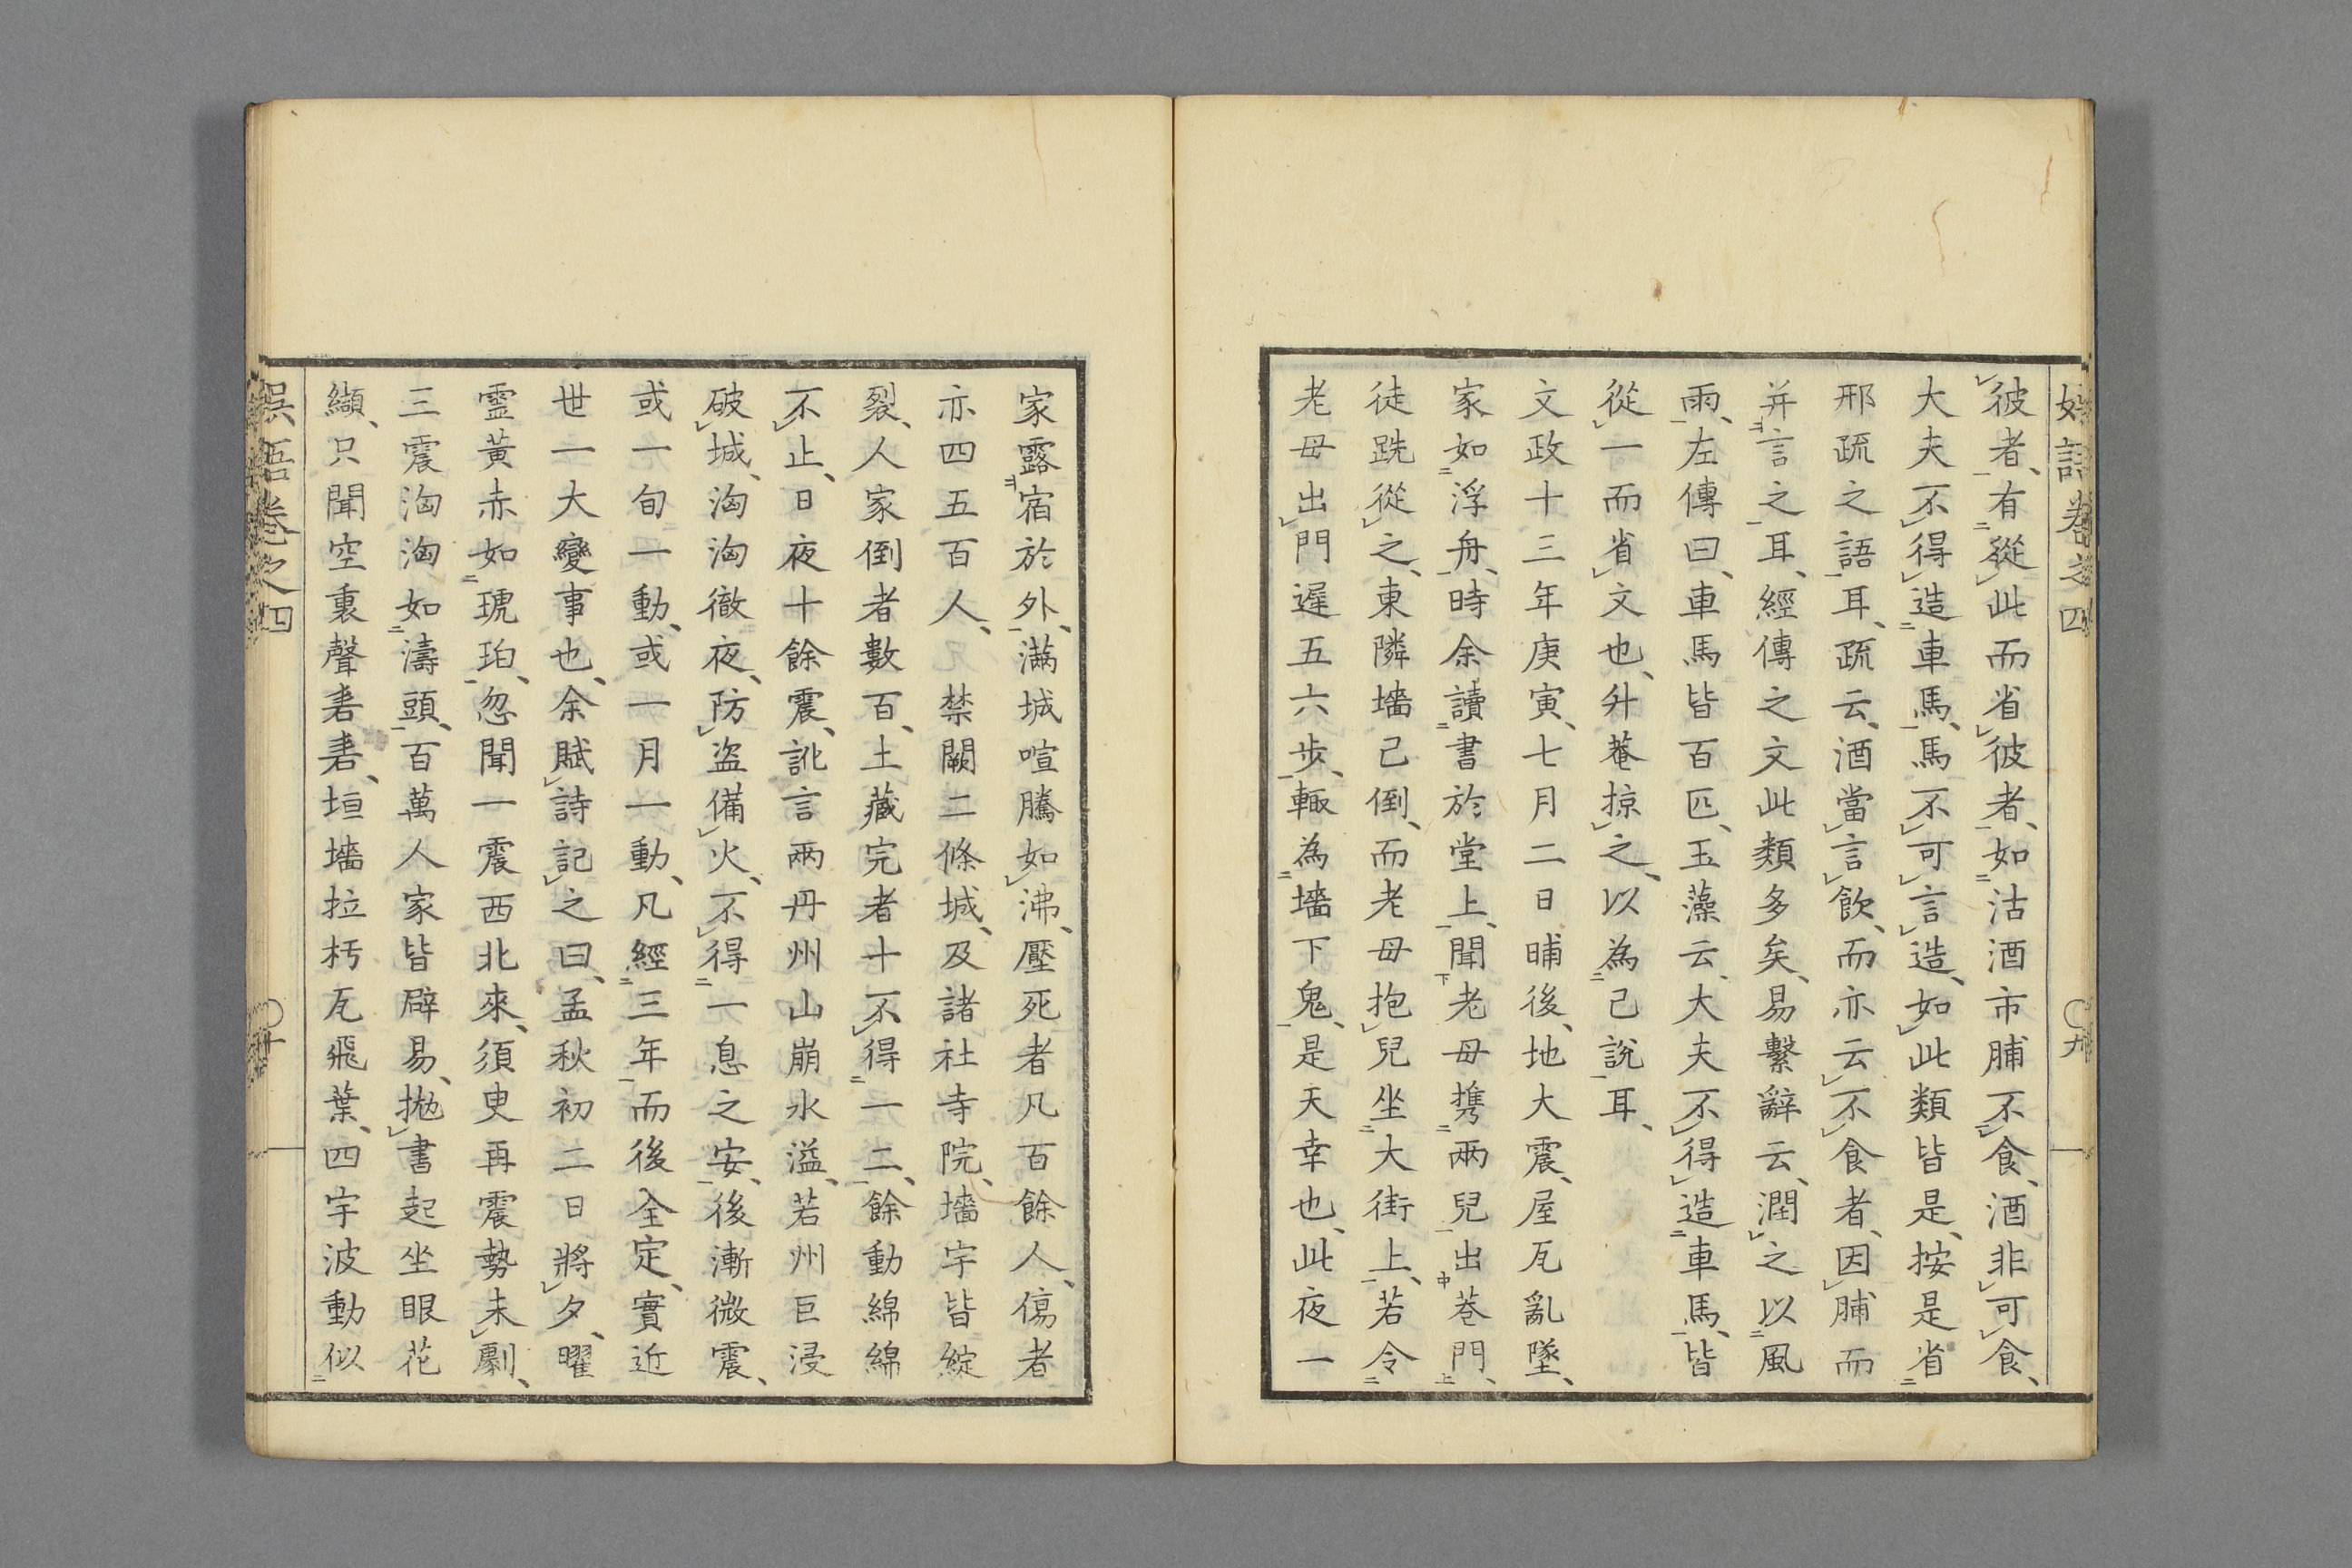 彼者、有從此而省彼者、如沽酒市脯不食、酒非可食、
大夫不得造車馬、馬不可言造、如此類皆是、按是省
邢疏之語耳、疏云、酒當言飲、而亦云不食者、因脯而
并言之耳、經傳之文此類多矣、易繫辭云、潤之以風
雨、左傳曰、車馬皆百匹、玉藻云、大夫不得造車馬、皆
從一而省文也、升菴掠之、以為己說耳、
文政十三年庚寅、七月二日晡後、地大震、屋瓦亂墜、
家如浮舟、時余讀書於堂上、聞老母携兩兒出巷門、
徒跣從之、東隣墻已倒、而老母抱兒坐大街上、若令
老母出門遲五六步、輙為墻下鬼、是天幸也、此夜一
家露宿於外、滿城喧騰如沸、壓死者凡百餘人、傷者
亦四五百人、禁闕二條城、及諸社寺院、墻宇皆綻
裂、人家倒者數百、土藏完者十不得一二、餘動綿綿
不止、日夜十餘震、訛言兩丹州山崩水溢、若州巨浸
破城、洶洶徹夜、防盜備火、不得一息之安、後漸微震、
或一旬一動、或一月一動、凡經三年而後全定、實近
世一大變事也、余賦詩記之曰、孟秋初二日將夕、曜
靈黃赤如琥珀、忽聞一震西北來、須臾再震勢未劇、
三震洶洶如濤頭、百萬人家皆辟易、拋書起坐眼花
纈、只聞空裏聲砉砉、垣墻拉朽瓦飛葉、四宇波動似
卷之四
〇九
卷之四
〇十